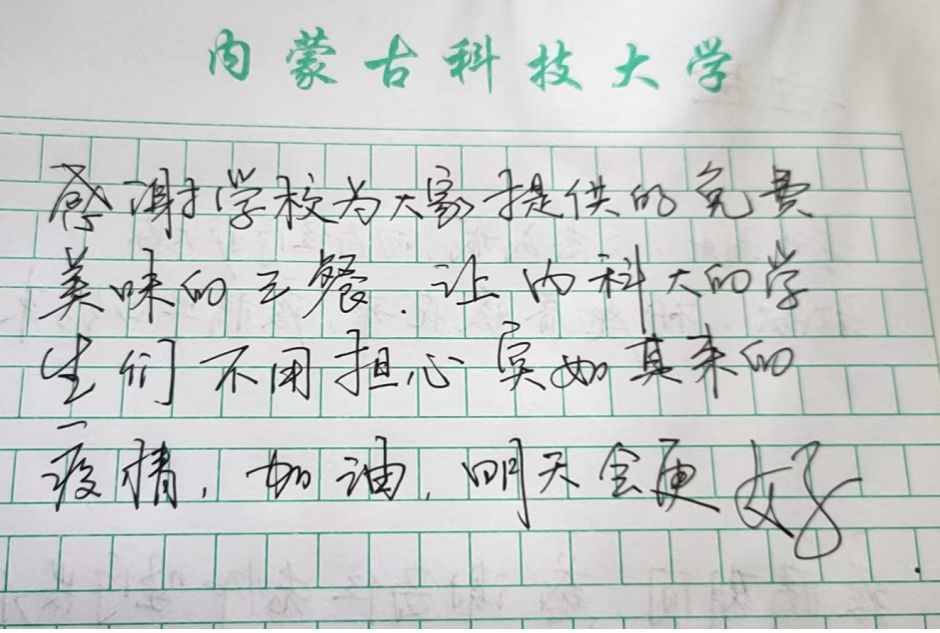 内蒙古科技大学
感谢学校为大家提供的免费
美味的三餐.让内科大的学
生们不用担心突如其来的
疫情,加油,明天会更好